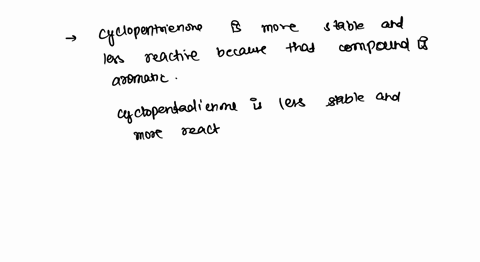 → cyclopentrienone is more stable and
less reactive because that compound is
aromatic.
cyclopentadienone is less stable and
more react